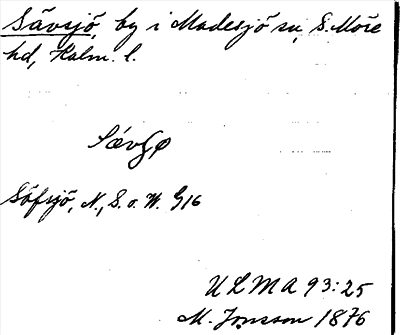 Sävsjö, by i Madesjö sn, S. Möre
hd, Kalm. l.
Sævsjø
Söfsjö, N., S. o. W. G16
ULMA 93:25
M. Jonsson 1876